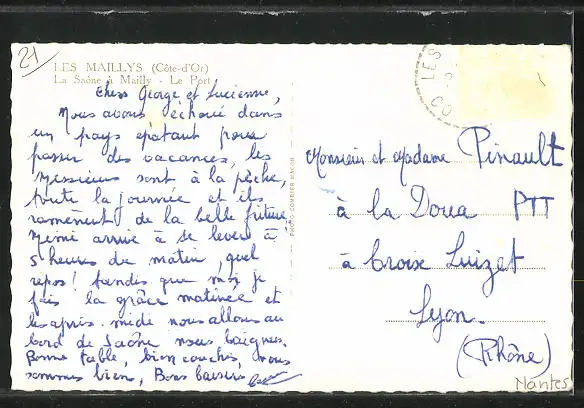 21
LES MAILLYS (Côte-d'Or)
La Saône à Mailly - Le Port
Chers George et Lucienne,
Nous avons échoué dans
un pays épatant pour
passer des vacances, les
Messieurs sont à la pêche
toute la journée et ils
ramènent de la belle friture
Mémé arrive à se lever à
5 heures du matin, quel
repos! tandis que moi je
fais la grâce matinée et
les après-midi nous allons au
bord de Saône nous baigner.
Bonne table, bien couchés, nous
sommes bien, Bons baisers
PHOTO COMBIER MACON
LES
CO
Monsieur et Madame Pinault
à la Doua PTT
à Croix Luizet
Lyon.
(Rhône)
Nantes